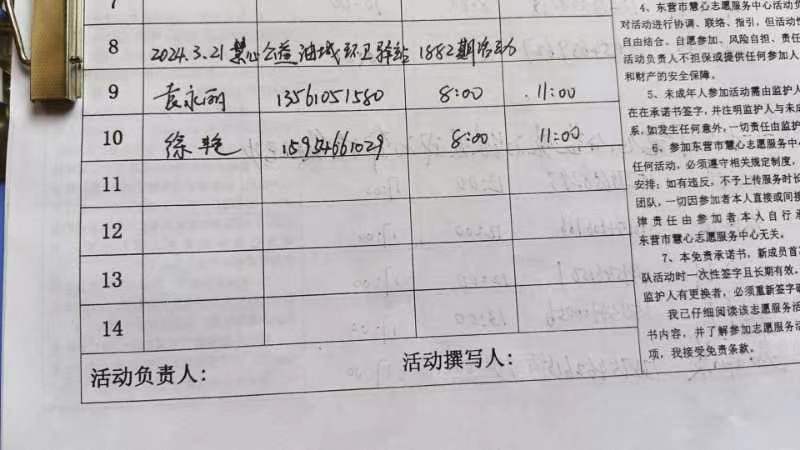 7
8 2024.3.21 慧心公益油城环卫驿站 1882期活动
9 袁永丽 13561051580 8:00 11:00
10 徐艳 15954661029 8:00 11:00
11
12
13
14
活动负责人： 活动撰写人：
4、东营市慧心志愿服务中心活动负
对活动进行协调、联络、指引，但活动
自由结合、自愿参加、风险自担、责任
活动负责人不担保或提供任何参加人
和财产的安全保障。
5、未成年人参加活动需由监护人
在在承诺书签字，并注明监护人与未
系，如发生任何意外，一切责任由监护
6、参加东营市慧心志愿服务中心
任何活动，必须遵守相关规定制度，
安排；如有违反，不予上传服务时长
团队，一切因参加者本人直接或间接
律责任由参加者本人自行承
东营市慧心志愿服务中心无关。
7、本免责承诺书，新成员首
队活动时一次性签字且长期有效，
监护人有更换者，必须重新签字
我已仔细阅读该志愿服务活
书内容，并了解参加志愿服务活
项，我接受免责条款。